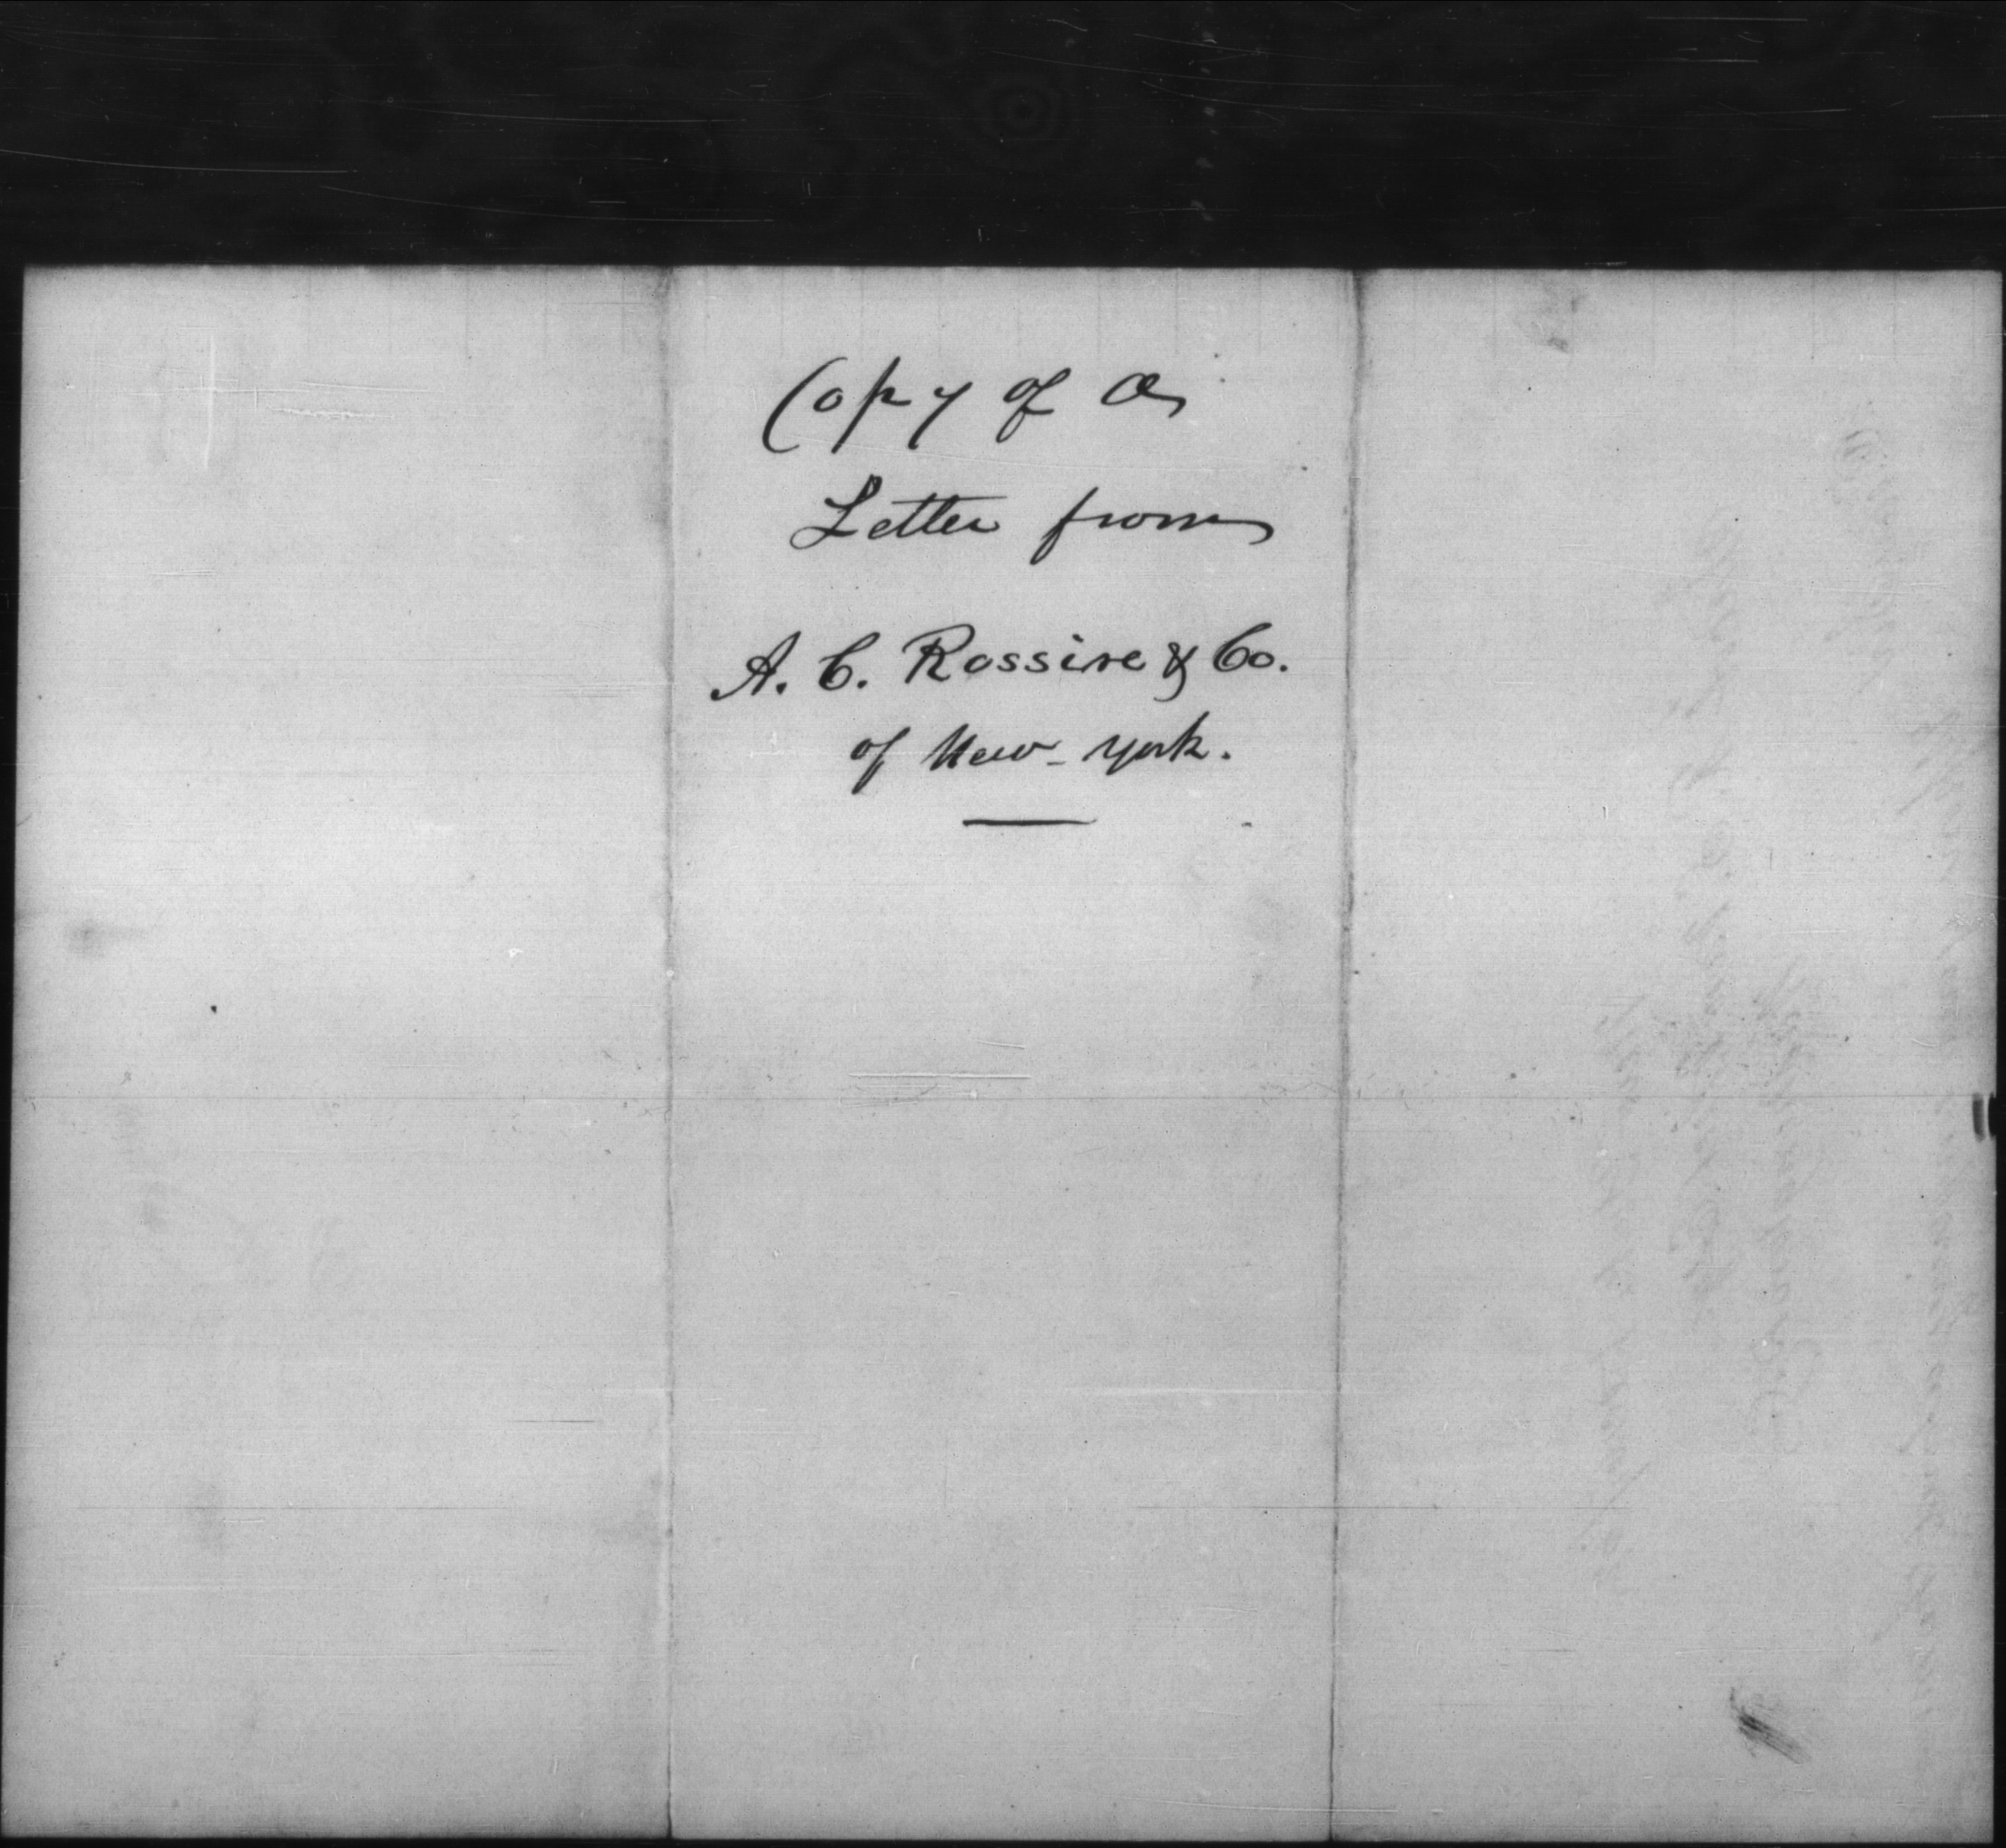 Copy of a
Letter from
A. C. Rossire & Co.
of New-York.